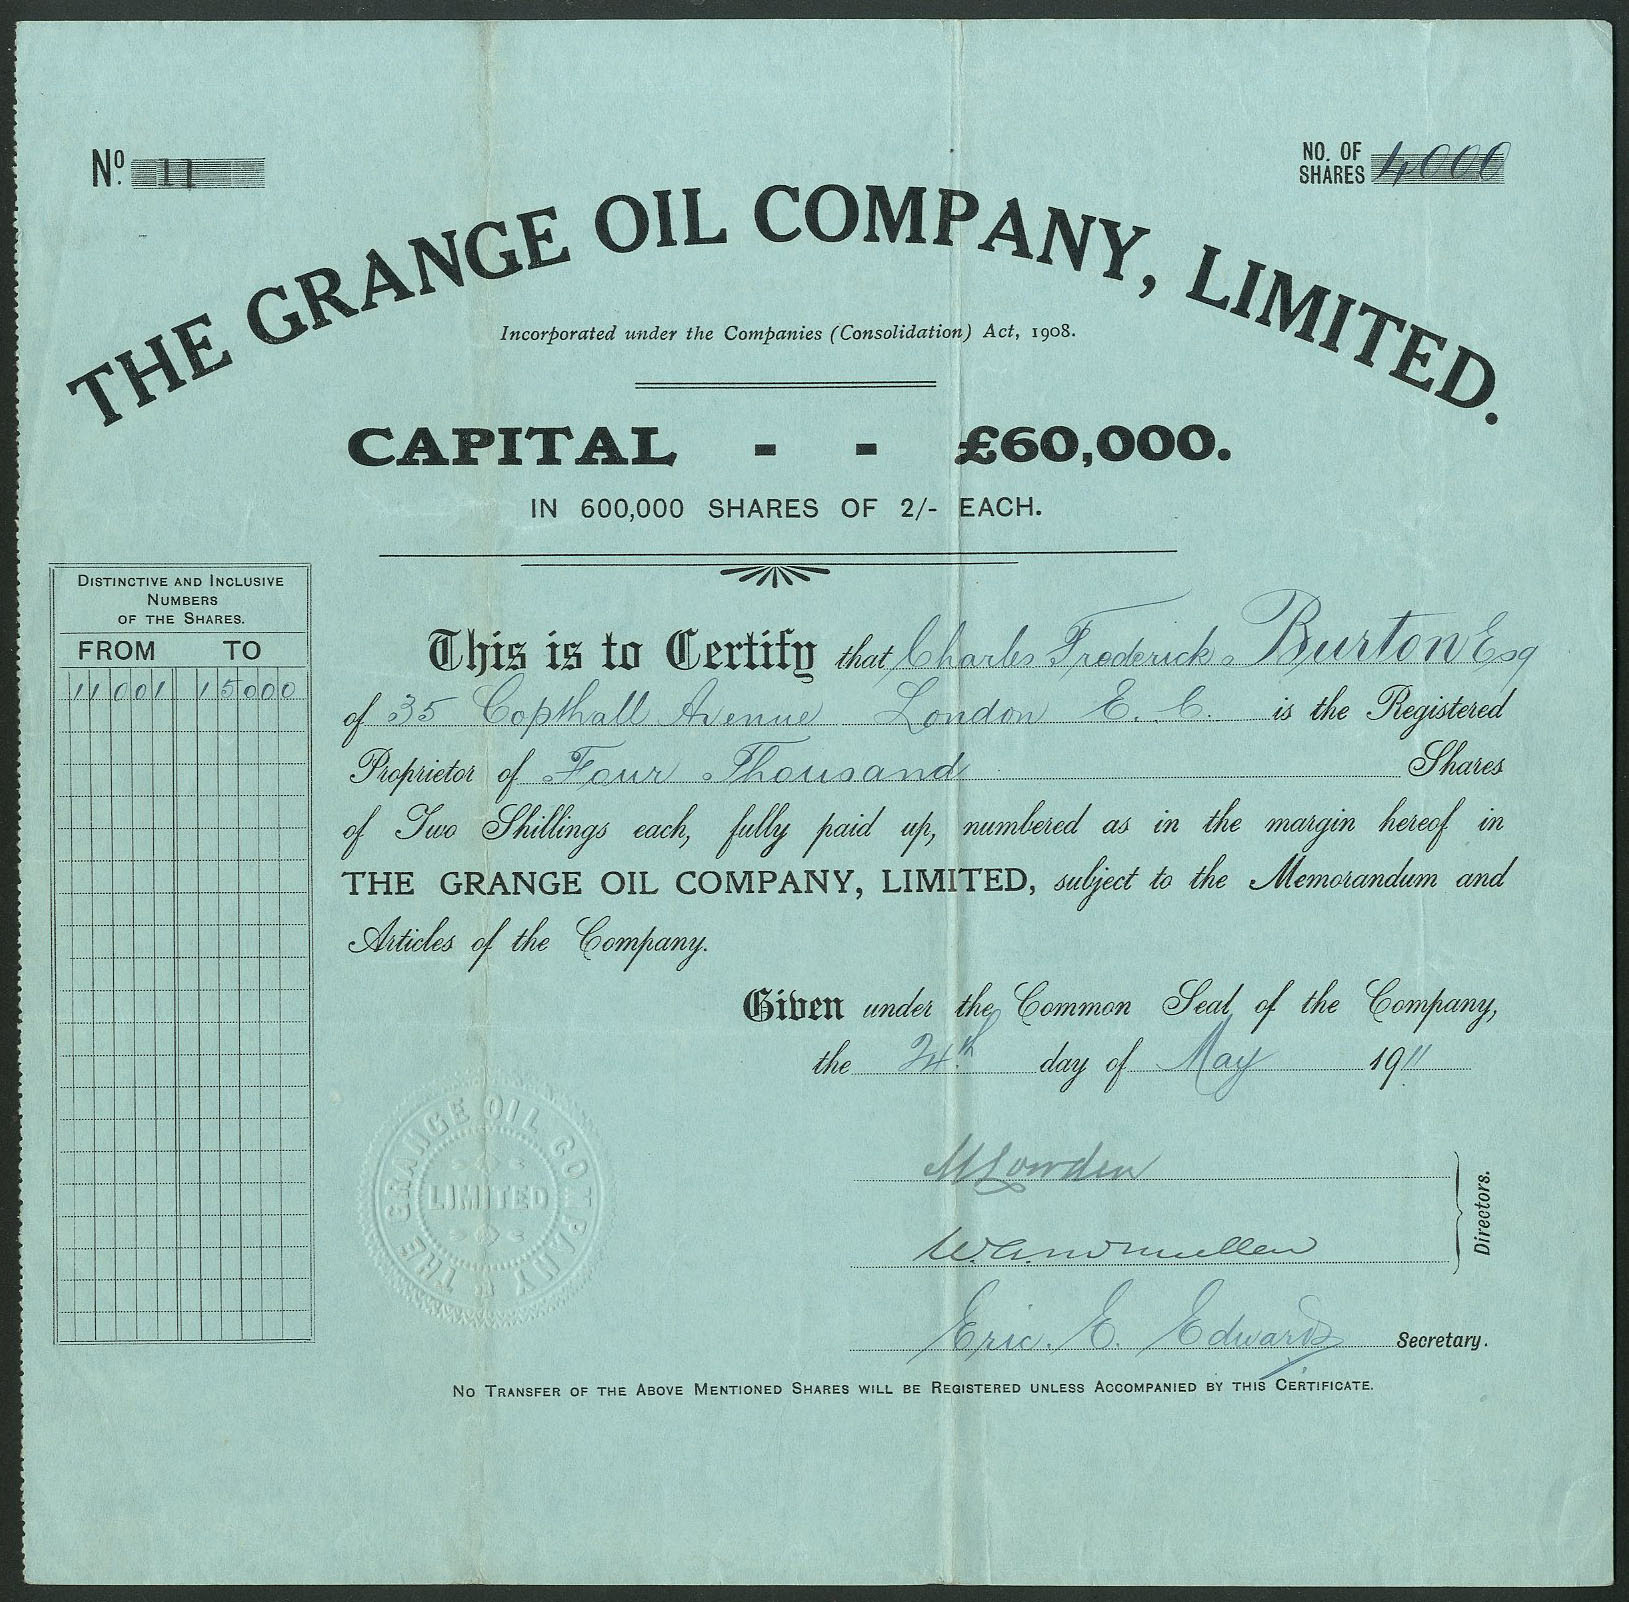 No. 11
NO. OF SHARES 4000
THE GRANGE OIL COMPANY, LIMITED.
Incorporated under the Companies (Consolidation) Act, 1908.
CAPITAL - - £60,000.
IN 600,000 SHARES OF 2/- EACH.
DISTINCTIVE AND INCLUSIVE
NUMBERS
OF THE SHARES.
FROM TO
11001 15000
This is to Certify that Charles Frederick Burton Esq
of 35 Copthall Avenue London E. C. is the Registered
Proprietor of Four Thousand Shares
of Two Shillings each, fully paid up, numbered as in the margin hereof in
THE GRANGE OIL COMPANY, LIMITED, subject to the Memorandum and
Articles of the Company.
Given under the Common Seal of the Company,
the 24th day of May 1911
THE GRANGE OIL COMPANY
LIMITED
Directors.
Eric. E. Edwards Secretary.
NO TRANSFER OF THE ABOVE MENTIONED SHARES WILL BE REGISTERED UNLESS ACCOMPANIED BY THIS CERTIFICATE.